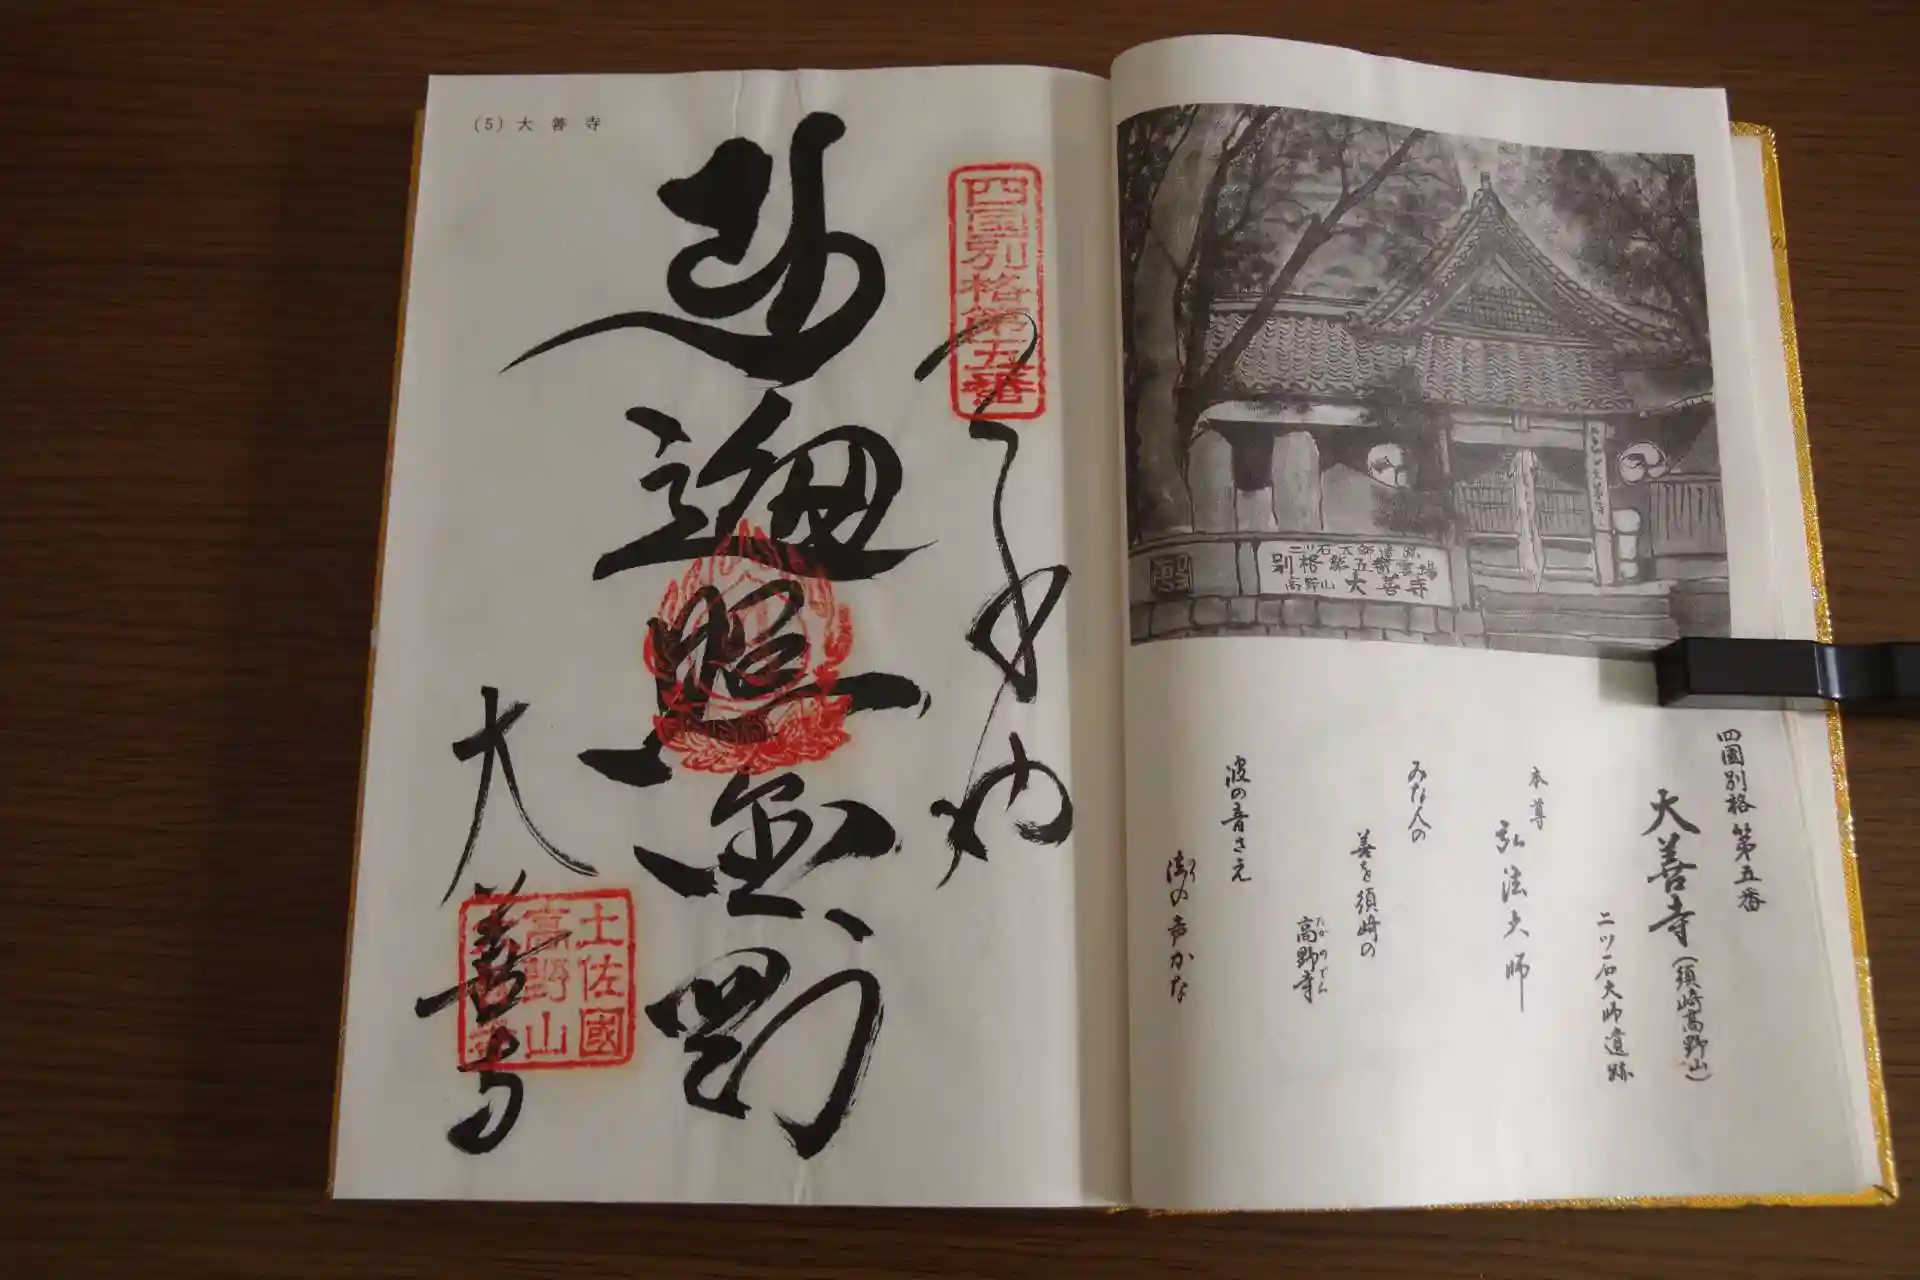 四国別格第五番
大善寺(須崎高野山)
二ツ石大師遺跡
本尊
弘法大師
みな人の
善を須崎の
高野寺
波の音さえ
法の声かな
二ツ石大師遺跡
別格第五番霊場
高野山 大善寺
(5) 大善寺
四国別格第五番
遍照金剛
大善寺
土佐國
高野山
大善寺